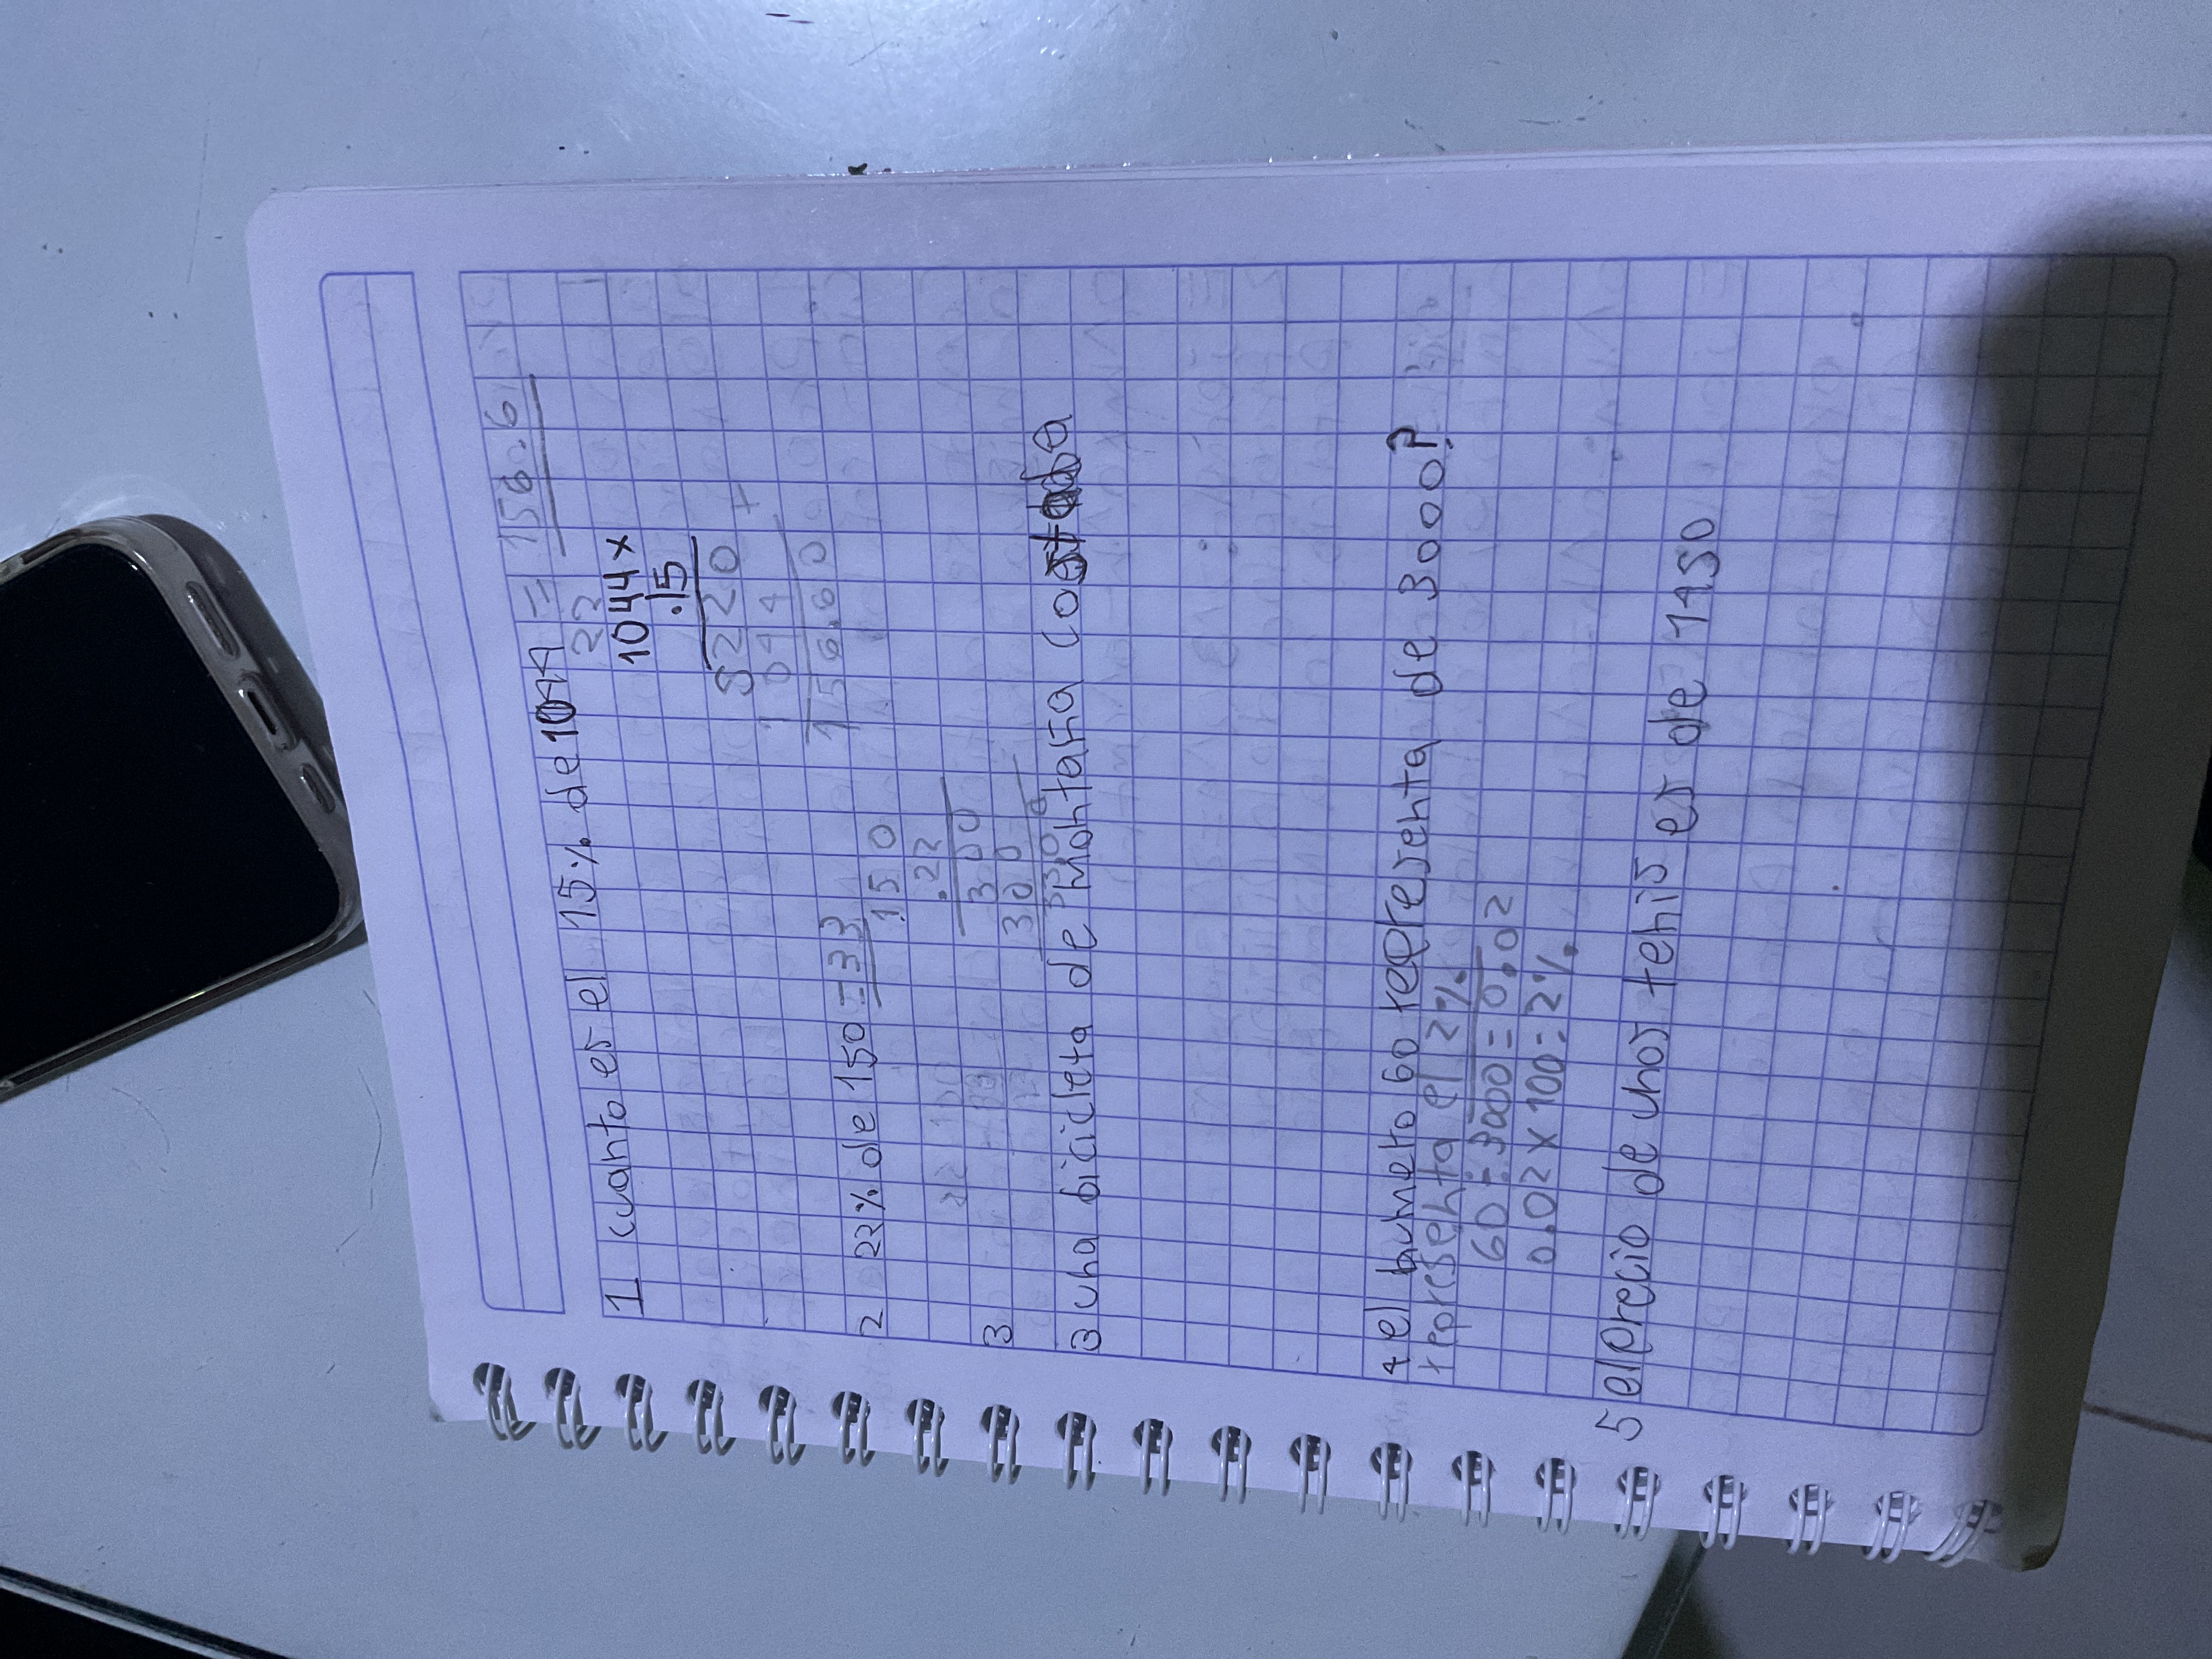 1 cuanto es el 15% de 1044 = 156.6
23
1044 x
.15
5220 +
1044
156.60
2 22% de 150 = 33
150
.22
300
300
3300
3
3 una bicicleta de Montaña
4 el numero 60 representa de 3000?
representa el 2%
60 ÷ 3000 = 0.02
0.02 x 100 = 2%
5 el precio de unos tenis es de 1450